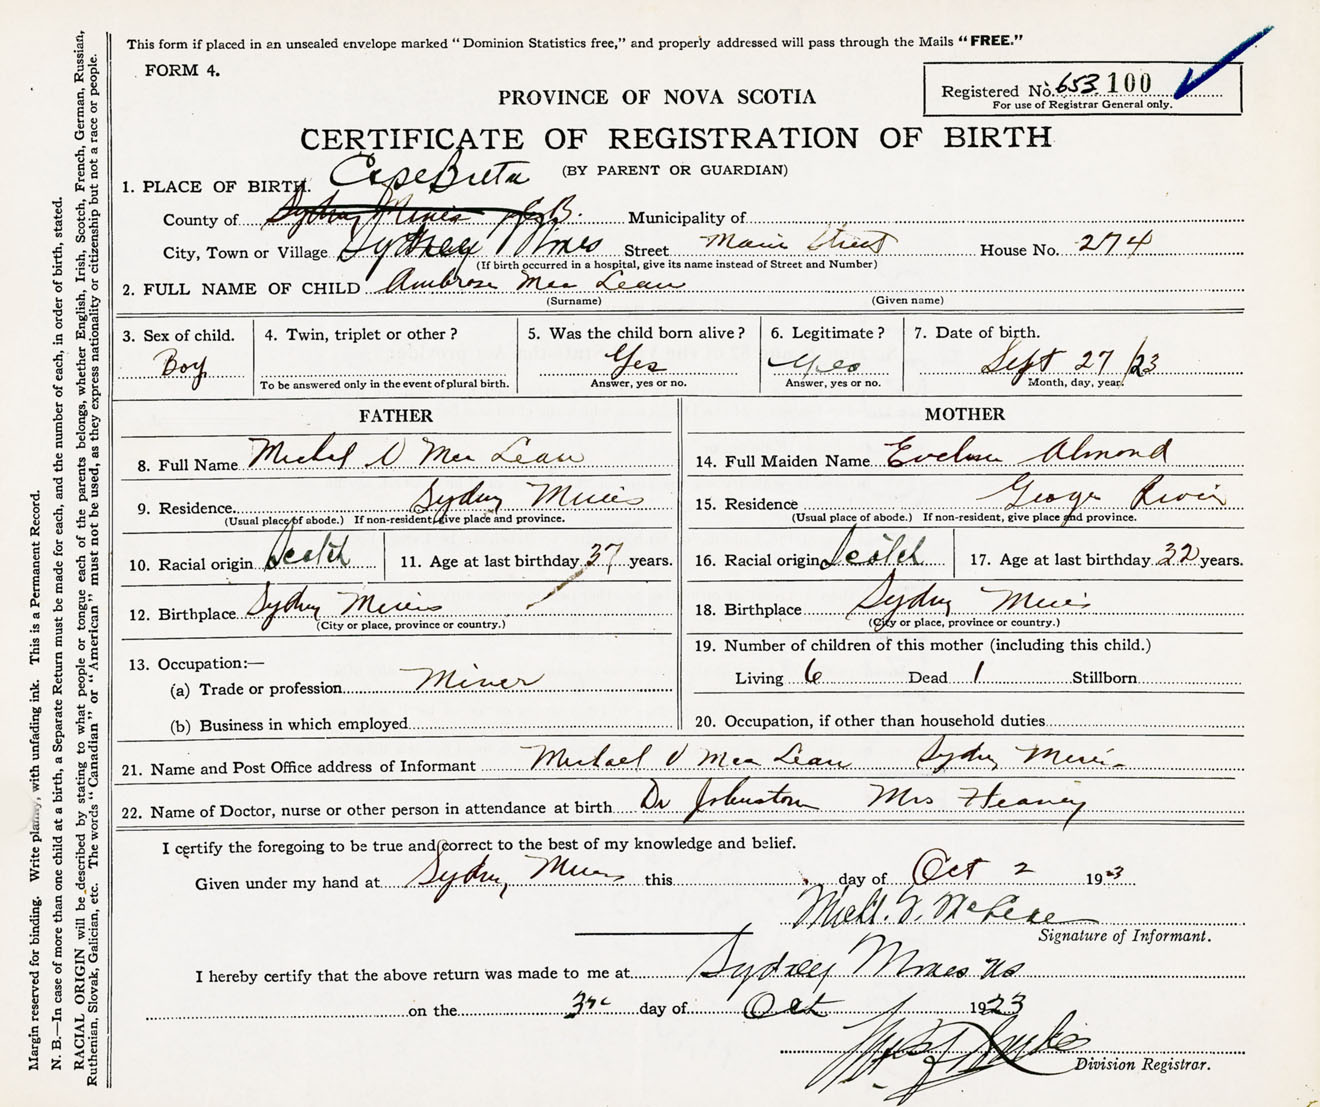 This form if placed in an unsealed envelope marked "Dominion Statistics free," and properly addressed will pass through the Mails "FREE."
FORM 4.
Registered No. 653 100
For use of Registrar General only.
PROVINCE OF NOVA SCOTIA
CERTIFICATE OF REGISTRATION OF BIRTH
(BY PARENT OR GUARDIAN)
1. PLACE OF BIRTH. Cape Breton
County of Sydney Mines C.B. Municipality of
City, Town or Village Sydney Mines Street Main Street House No. 274
(If birth occurred in a hospital, give its name instead of Street and Number)
2. FULL NAME OF CHILD Ambrose Mac Lean
(Surname) (Given name)
3. Sex of child. Boy
4. Twin, triplet or other?
To be answered only in the event of plural birth.
5. Was the child born alive? Yes
Answer, yes or no.
6. Legitimate? Yes
Answer, yes or no.
7. Date of birth. Sept 27/23
Month, day, year.
FATHER
8. Full Name Michel V Mac Lean
9. Residence. Sydney Mines
(Usual place of abode.) If non-resident, give place and province.
10. Racial origin Scotch 11. Age at last birthday 37 years.
12. Birthplace Sydney Mines
(City or place, province or country.)
13. Occupation:—
(a) Trade or profession Miner
(b) Business in which employed
MOTHER
14. Full Maiden Name Evelyn Almond
15. Residence George River
(Usual place of abode.) If non-resident, give place and province.
16. Racial origin Scotch 17. Age at last birthday 32 years.
18. Birthplace Sydney Mines
(City or place, province or country.)
19. Number of children of this mother (including this child.)
Living 6 Dead 1 Stillborn
20. Occupation, if other than household duties
21. Name and Post Office address of Informant Michael V Mac Lean Sydney Mines
22. Name of Doctor, nurse or other person in attendance at birth Dr Johnston Mrs Heaney
I certify the foregoing to be true and correct to the best of my knowledge and belief.
Given under my hand at Sydney Mines this day of Oct 2 1923
Michl. V. McLean
Signature of Informant.
I hereby certify that the above return was made to me at Sydney Mines NS
on the 3rd day of Oct 1923
Division Registrar.
Margin reserved for binding. Write plainly, with unfading ink. This is a Permanent Record.
N. B.—In case of more than one child at a birth, a Separate Return must be made for each, and the number of each, in order of birth, stated.
RACIAL ORIGIN will be described by stating to what people or tongue each of the parents belongs, whether English, Irish, Scotch, French, German, Russian,
Ruthenian, Slovak, Galician, etc. The words "Canadian" or "American" must not be used, as they express nationality or citizenship but not a race or people.